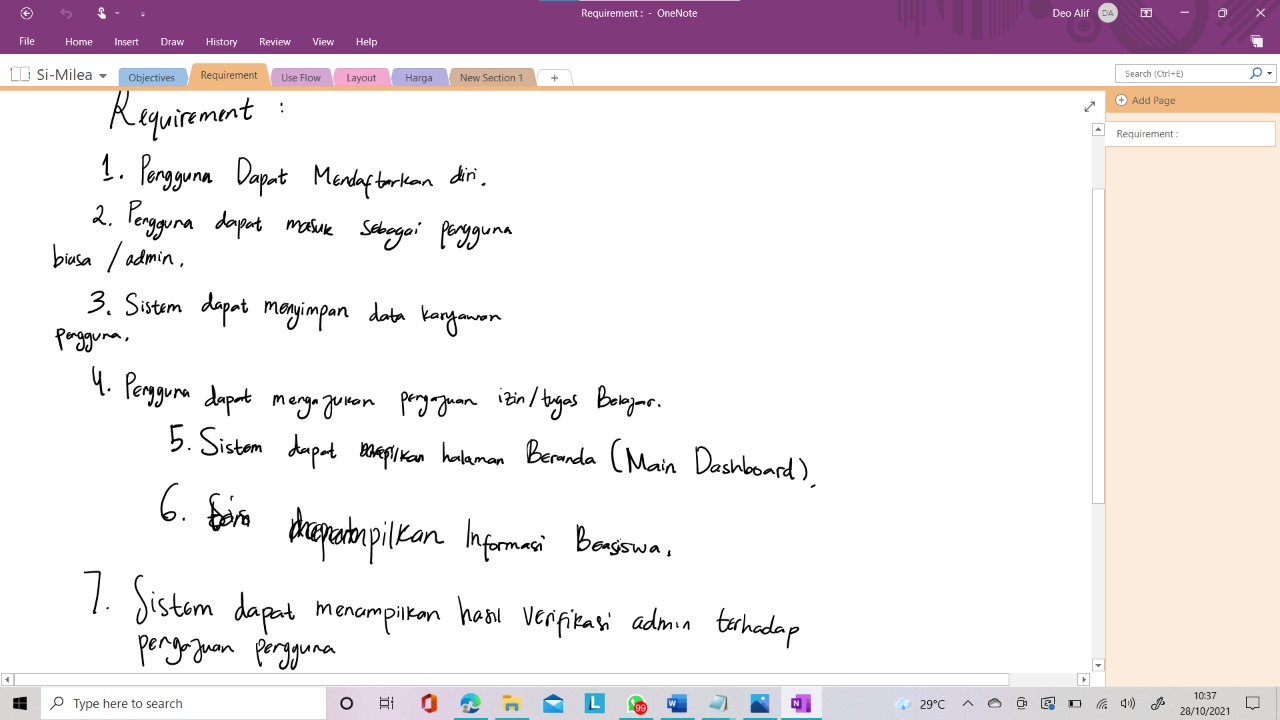 Requirement : - OneNote
Deo Alif DA
File Home Insert Draw History Review View Help
Si-Milea Objectives Requirement Use Flow Layout Harga New Section 1 +
Search (Ctrl+E)
Add Page
Requirement :
Requirement :
1. Pengguna Dapat Mendaftarkan diri.
2. Pengguna dapat masuk sebagai pengguna
biasa / admin.
3. Sistem dapat menyimpan data karyawan
pengguna.
4. Pengguna dapat mengajukan pengajuan izin/tugas Belajar.
5. Sistem dapat halaman Beranda (Main Dashboard).
6. Informasi Beasiswa.
7. Sistem dapat menampilkan hasil verifikasi admin terhadap
pengajuan pengguna
Type here to search
99
29°C
10:37
28/10/2021